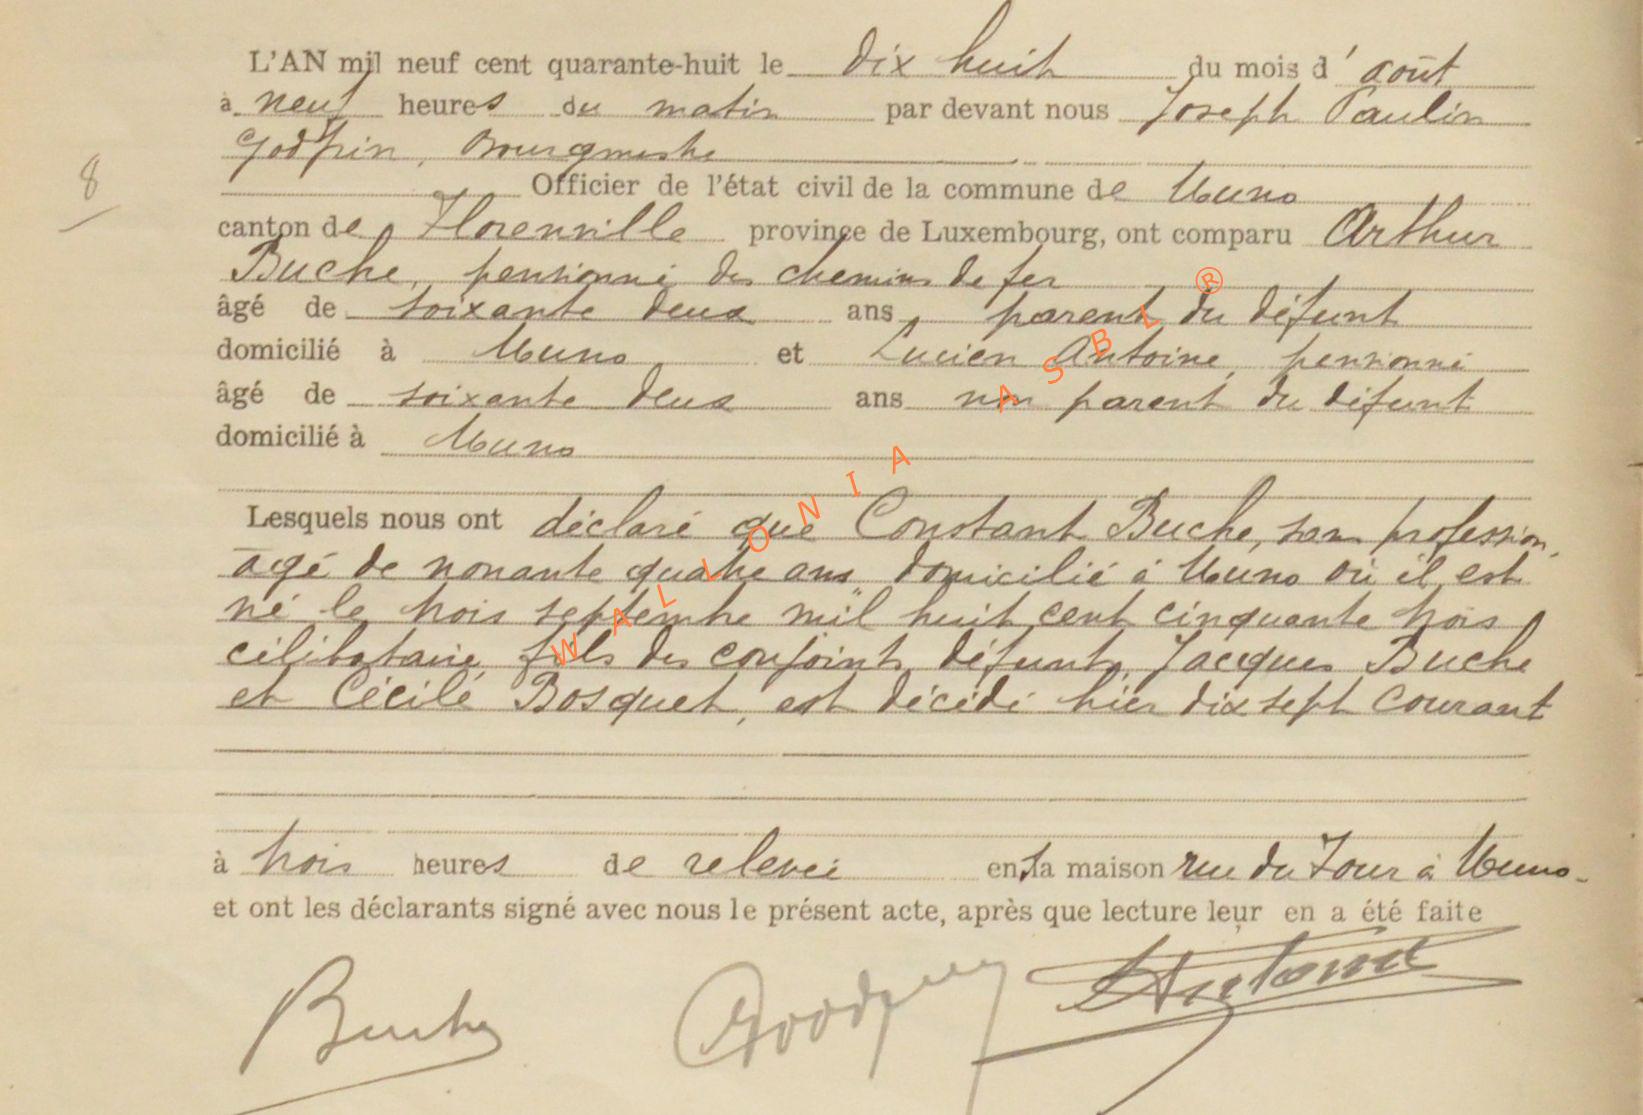 L'AN mil neuf cent quarante-huit le dix huit du mois d'août
à neuf heures du matin par devant nous Joseph Paulin
Godfrin, Bourgmestre
8
Officier de l'état civil de la commune de Muno
canton de Florenville province de Luxembourg, ont comparu Arthur
Buche, pensionné des chemins de fer
âgé de soixante deux ans parent du défunt
domicilié à Muno et Lucien Antoine, pensionné
âgé de soixante deux ans non parent du défunt
domicilié à Muno
Lesquels nous ont déclaré que Constant Buche, sans profession,
âgé de nonante quatre ans domicilié à Muno où il est
né le trois septembre mil huit cent cinquante trois
célibataire fils des conjoints défunts Jacques Buche
et Cécile Bosquet, est décédé hier dix sept courant
à trois heures de relevée en sa maison rue du Four à Muno-
et ont les déclarants signé avec nous le présent acte, après que lecture leur en a été faite
Buche Godfrin LAntoine
WALLONIA ASBL ®